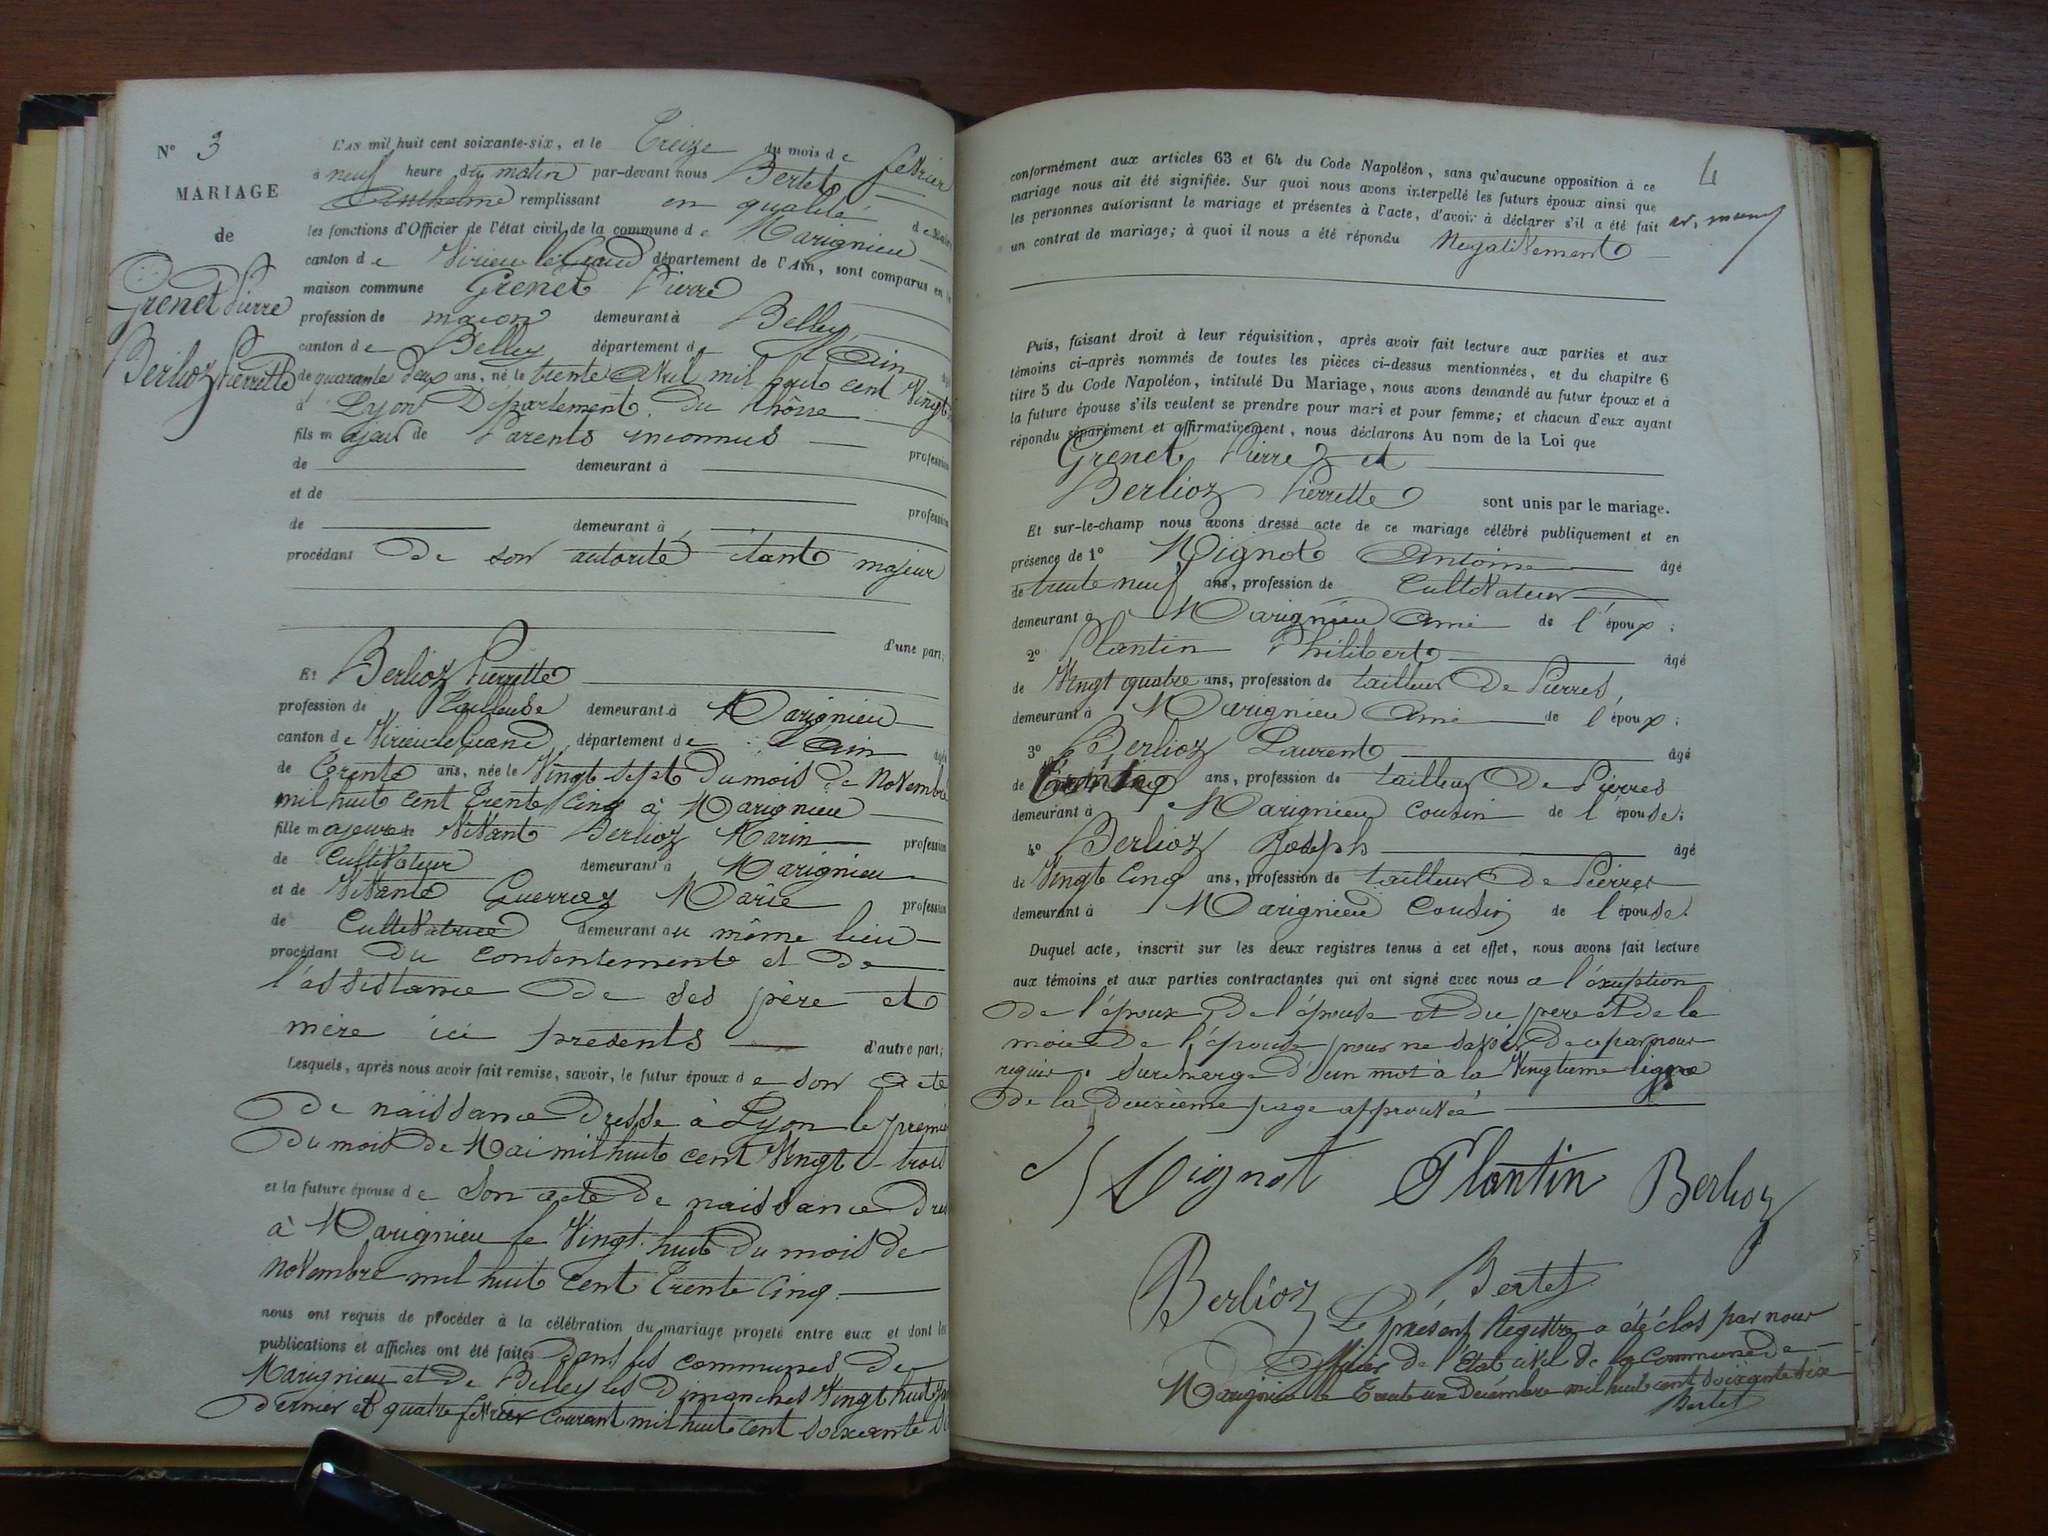 N° 3
MARIAGE
de
Grenet Pierre
Berlioz Pierrette
L'AN mil huit cent soixante-six, et le Treize du mois de février
à neuf heure du matin par-devant nous Bertet
Anthelme remplissant en qualité de Maire
les fonctions d'Officier de l'état civil de la commune de Marignieu
canton de Virieu le Grand département de l'Ain, sont comparus en la
maison commune Grenet Pierre
profession de maçon demeurant à Belley
canton de Belley département de l'Ain âgé
de quarante deux ans, né le trente Avril mil huit cent Vingt
à Lyon Département du Rhône
fils majeur de Parents inconnus profession
de demeurant à
et de profession
de demeurant à
procédant de son autorité étant majeur
d'une part;
Et Berlioz Pierrette
profession de Tailleuse demeurant à Marignieu
canton de Virieu le Grand département de l'Ain âgée
de Trente ans, née le Vingt sept du mois de Novembre
mil huit cent Trente Cinq à Marignieu
fille majeure de Vivant Berlioz Marin profession
de Cultivateur demeurant à Marignieu
et de Vivante Guerraz Marie profession
de Cultivatrice demeurant au même lieu
procédant du consentement et de
l'assistance de ses père et
mère ici présents d'autre part;
Lesquels, après nous avoir fait remise, savoir, le futur époux de son acte
de naissance dressé à Lyon le premier
du mois de Mai mil huit cent Vingt-trois
et la future épouse de son acte de naissance
à Marignieu le Vingt huit du mois de
novembre mil huit cent Trente Cinq
nous ont requis de procéder à la célébration du mariage projeté entre eux et dont les
publications et affiches ont été faites dans les communes de
Marignieu et de Belley les dimanches Vingt huit
dernier et quatre février courant mil huit cent soixante
4
conformément aux articles 63 et 64 du Code Napoléon, sans qu'aucune opposition à ce
mariage nous ait été signifiée. Sur quoi nous avons interpellé les futurs époux ainsi que
les personnes autorisant le mariage et présentes à l'acte, d'avoir à déclarer s'il a été fait
un contrat de mariage; à quoi il nous a été répondu Négativement
Puis, faisant droit à leur réquisition, après avoir fait lecture aux parties et aux
témoins ci-après nommés de toutes les pièces ci-dessus mentionnées, et du chapitre 6
titre 5 du Code Napoléon, intitulé Du Mariage, nous avons demandé au futur époux et à
la future épouse s'ils veulent se prendre pour mari et pour femme; et chacun d'eux ayant
répondu séparément et affirmativement, nous déclarons Au nom de la Loi que
Grenet Pierre et
Berlioz Pierrette sont unis par le mariage.
Et sur-le-champ nous avons dressé acte de ce mariage célébré publiquement et en
présence de 1° Mignot Antoine âgé
de trente neuf ans, profession de Cultivateur
demeurant à Marignieu Ami de l'époux;
2° Plantin Philibert âgé
de Vingt quatre ans, profession de tailleur De Pierres,
demeurant à Marignieu Ami de l'époux;
3° Berlioz Laurent âgé
de ans, profession de tailleur De Pierres
demeurant à Marignieu Cousin de l'épouse;
4° Berlioz Joseph âgé
de Vingt Cinq ans, profession de tailleur De Pierres
demeurant à Marignieu Cousin de l'épouse.
Duquel acte, inscrit sur les deux registres tenus à cet effet, nous avons fait lecture
aux témoins et aux parties contractantes qui ont signé avec nous a l'exception
De l'époux, De l'épouse et du père et de la
mère De l'épouse pour ne savoir de ce par nous
requis. Surcharge d'un mot à la Vingtième ligne
De la deuxième page approuvée
Mignot Plantin Berlioz
Berlioz Bertet
Le présent Registre a été clos par nous
Officier de l'Etat civil de la Commune de
Marignieu le Trente un Décembre mil huit cent soixante six
Bertet